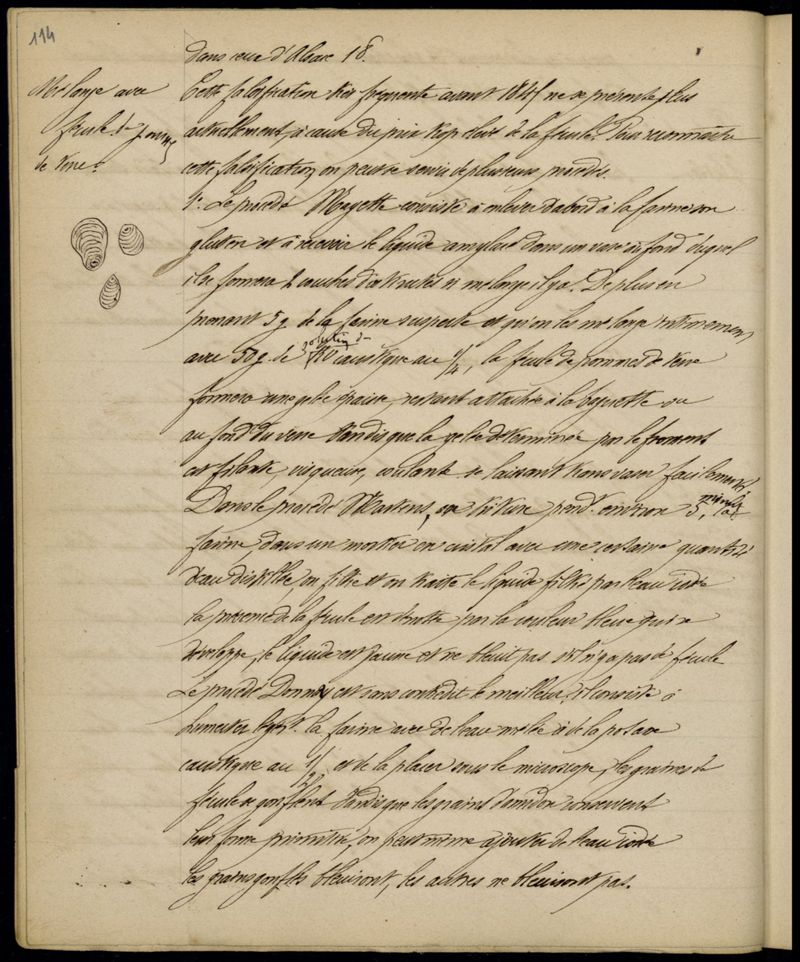 114
dans rue d'Alsace 18.
Mélange avec
fécule de pommes
de terre.
Cette falsification très fréquente avant 1845 ne se présente plus
actuellement, à cause du prix trop élevé de la fécule. Pour reconnaître
cette falsification, on peut se servir de plusieurs procédés.
1º. Le procédé Mayette consiste à enlever d'abord à la farine son
gluten et à recevoir le liquide amylacé dans un vase au fond duquel
il se formera 2 couches distinctes si mélange il y a. De plus en
prenant 5 g. de la farine suspecte et qu'on les mélange intimement
avec 50 g. de solution de KO caustique au 1/4, la fécule de pommes de terre
formera une gelée épaisse, restant attachée à la baguette ou
au fond du verre tandis que la gelée déterminée par le froment
est filante, visqueuse, coulante se laissant transvaser facilement.
Dans le procédé Martens, on triture pend. environ 5 minutes la
farine, dans un mortier en cristal avec une certaine quantité
d'eau distillée, on filtre et on traite le liquide filtré par l'eau iodée
la présence de la fécule est décelée par la couleur bleue qui se
développe, le liquide est jaune et ne bleuit pas s'il n'y a pas de fécule
Le procédé Donny est sans contredit le meilleur, il consiste à
humecter la farine avec de l'eau mêlée à de la potasse
caustique au 1/12 et de la placer sous le microscope, les graines de
fécule se gonflent tandis que les grains d'amidon conservent
leur forme primitive, on peut même ajouter de l'eau iodée
les grains gonflés bleuiront, les autres ne bleuiront pas.